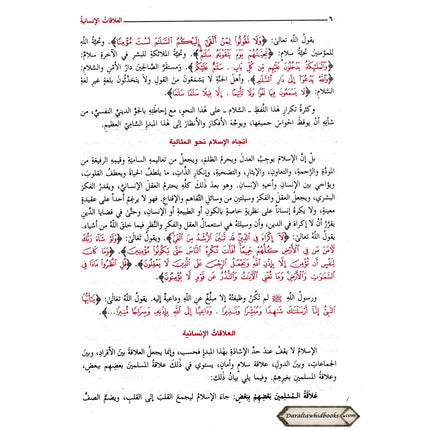 ٦ العلاقات الإنسانية
يقول الله تعالى: ﴿وَلَا تَقُولُوا لِمَنْ أَلْقَىٰ إِلَيْكُمُ السَّلَامَ لَسْتَ مُؤْمِنًا﴾. وتحية الله
للمؤمنين تحية سلام: ﴿تَحِيَّتُهُمْ يَوْمَ يَلْقَوْنَهُ سَلَامٌ﴾. وتحية الملائكة للبشر في الآخرة سلام:
﴿وَالْمَلَائِكَةُ يَدْخُلُونَ عَلَيْهِم مِّن كُلِّ بَابٍ سَلَامٌ عَلَيْكُم﴾. ومستقر الصالحين دار الأمن والسلام:
﴿وَاللَّهُ يَدْعُو إِلَىٰ دَارِ السَّلَامِ﴾. وأهل الجنة لا يسمعون من القول ولا يتحدثون بلغة غير لغة
السلام: ﴿لَا يَسْمَعُونَ فِيهَا لَغْوًا وَلَا تَأْثِيمًا . إِلَّا قِيلًا سَلَامًا سَلَامًا﴾.
وكثرة تكرار هذا اللفظ ـ السلام ـ على هذا النحو، مع إحاطته بالجو الديني النفسي، من
شأنه أن يوقظ الحواس جميعها، ويوجه الأفكار والأنظار إلى هذا المبدإ السامي العظيم.
اتجاه الإسلام نحو المثالية
بل إن الإسلام يوجب العدل ويحرم الظلم، ويجعل من تعاليمه السامية وقيمه الرفيعة من
المودة، والرحمة، والتعاون، والإيثار، والتضحية، وإنكار الذات، ما يلطف الحياة ويعطف القلوب،
ويؤاخي بين الإنسان وأخيه الإنسان. وهو بعد ذلك كله يحترم العقل الإنساني، ويقدر الفكر
البشري، ويجعل العقل والفكر وسيلتين من وسائل التفاهم والإقناع. فهو لا يرغم أحداً على عقيدة
معينة، ولا يكره إنساناً على نظرية خاصة بالكون أو الطبيعة أو الإنسان، وحتى في قضايا الدين
يقرر أن لا إكراه في الدين، وأن وسيلته هي استعمال العقل والفكر والنظر فيما خلق الله من أشياء.
يقول الله تعالى: ﴿لَا إِكْرَاهَ فِي الدِّينِ قَد تَّبَيَّنَ الرُّشْدُ مِنَ الْغَيِّ﴾. ويقول تعالى: ﴿وَلَوْ شَاءَ رَبُّكَ
لَآمَنَ مَن فِي الْأَرْضِ كُلُّهُمْ جَمِيعًا أَفَأَنتَ تُكْرِهُ النَّاسَ حَتَّىٰ يَكُونُوا مُؤْمِنِينَ﴾. ﴿وَمَا كَانَ
لِنَفْسٍ أَن تُؤْمِنَ إِلَّا بِإِذْنِ اللَّهِ وَيَجْعَلُ الرِّجْسَ عَلَى الَّذِينَ لَا يَعْقِلُونَ﴾. ﴿قُلِ انظُرُوا مَاذَا فِي
السَّمَاوَاتِ وَالْأَرْضِ وَمَا تُغْنِي الْآيَاتُ وَالنُّذُرُ عَن قَوْمٍ لَّا يُؤْمِنُونَ﴾.
ورسول الله ﷺ لم تكن وظيفته إلا مبلغ عن الله وداعية إليه. يقول الله تعالى: ﴿يَا أَيُّهَا
النَّبِيُّ إِنَّا أَرْسَلْنَاكَ شَاهِدًا وَمُبَشِّرًا وَنَذِيرًا . وَدَاعِيًا إِلَى اللَّهِ بِإِذْنِهِ وَسِرَاجًا مُّنِيرًا﴾.
العلاقات الإنسانية
الإسلام لا يقف عند حد الإشادة بهذا المبدإ فحسب، وإنما يجعل العلاقة بين الأفراد، وبين
الجماعات، وبين الدول، علاقة سلام وأمان، يستوي في ذلك علاقة المسلمين بعضهم ببعض،
وعلاقة المسلمين بغيرهم. وفيما يلي بيان ذلك:
علاقة المسلمين بعضهم ببعض: جاء الإسلام ليجمع القلب إلى القلب، ويضم الصف
Daraltawhidbooks.com